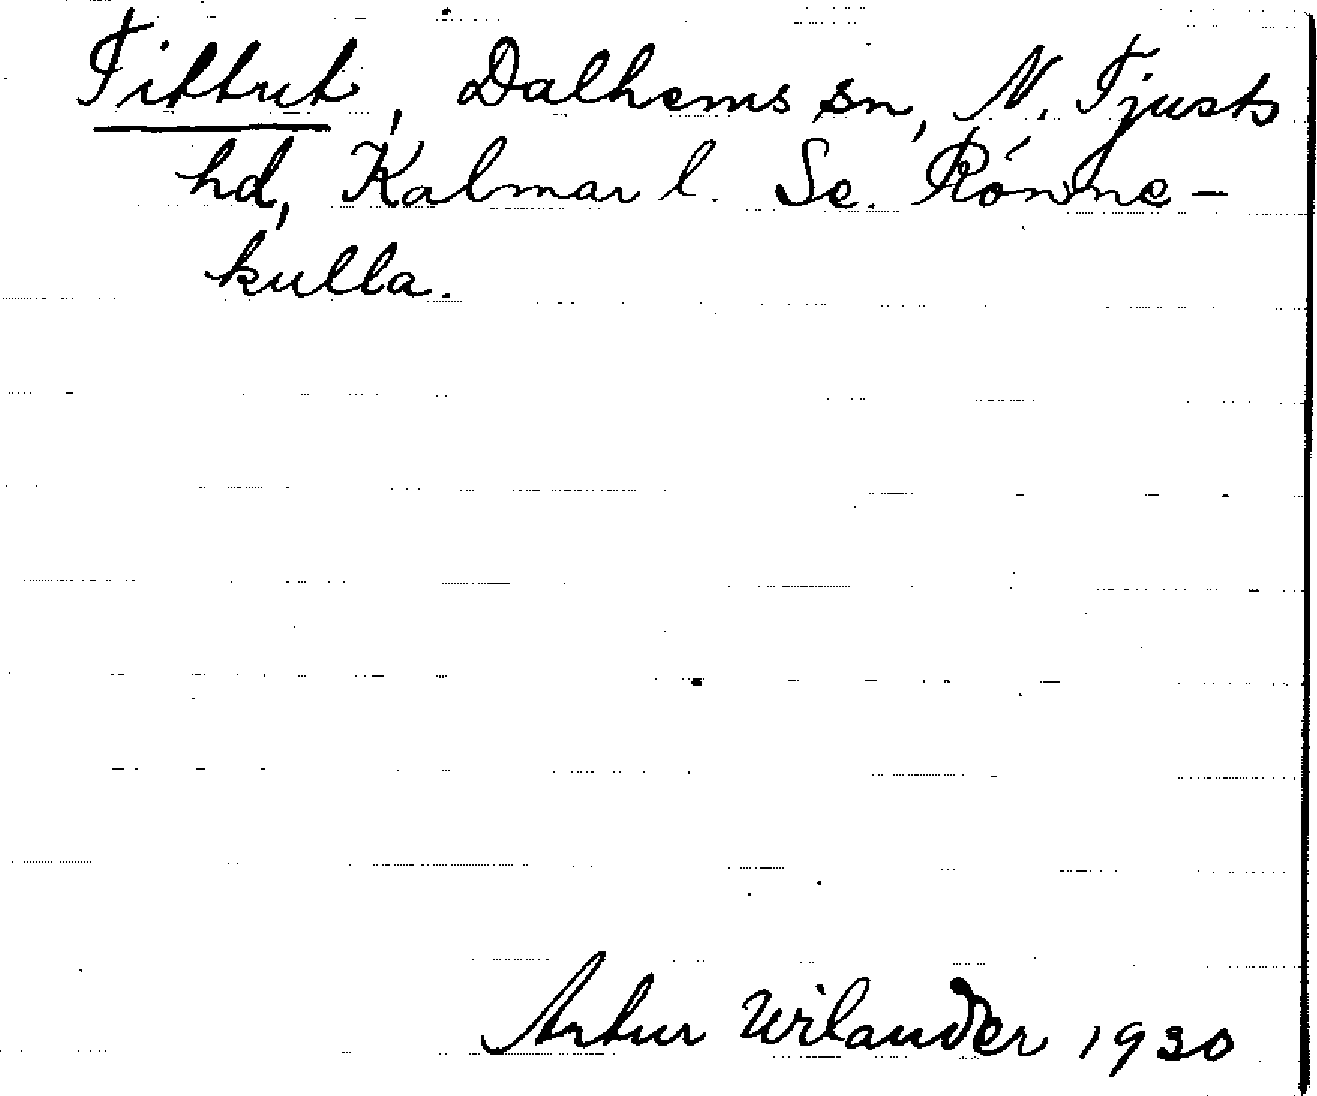 Tittut, Dalhems sn, N. Tjusts
hd, Kalmar l. Se. Rönne-
kulla.
Artur Wilander 1930